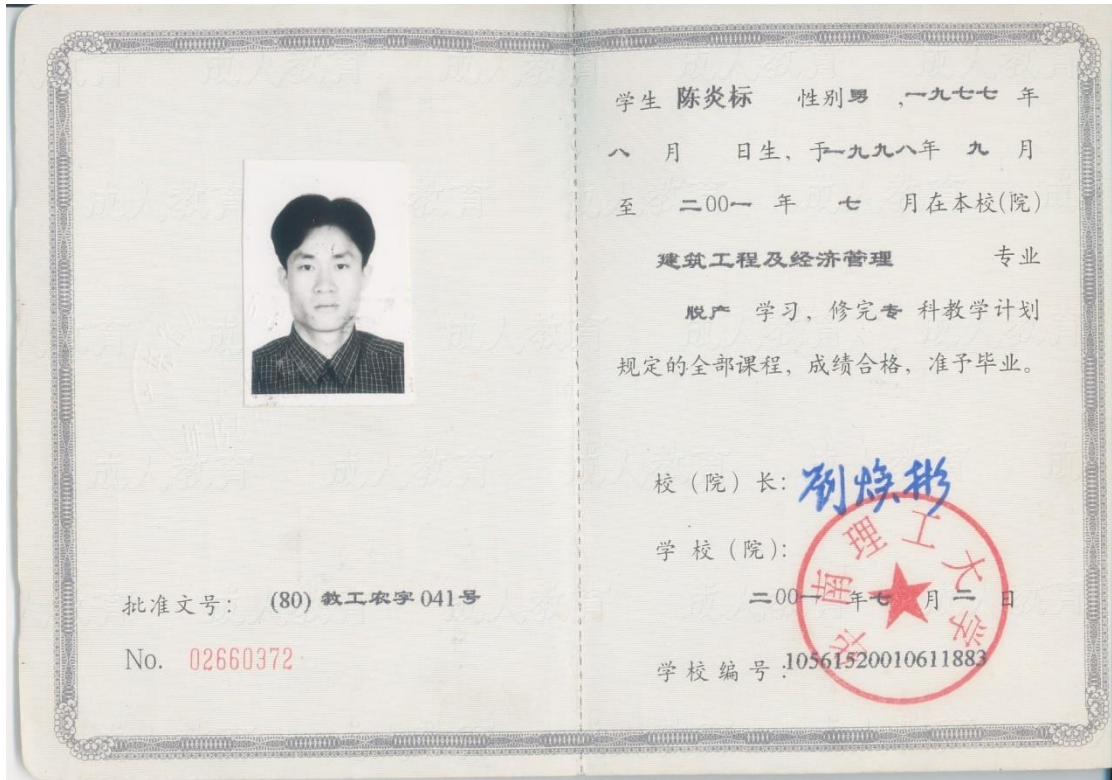 批准文号： (80) 教工农字 041号
No. 02660372
学生 陈炎标 性别男 ,一九七七 年
八 月 日生，于一九九八年 九 月
至 二00一 年 七 月在本校(院)
建筑工程及经济管理 专业
脱产 学习，修完专 科教学计划
规定的全部课程，成绩合格，准予毕业。
校（院）长：刘焕彬
学 校（院）：
华南理工大学
二00一 年七 月 二 日
学 校 编 号：10561520010611883
成人教育